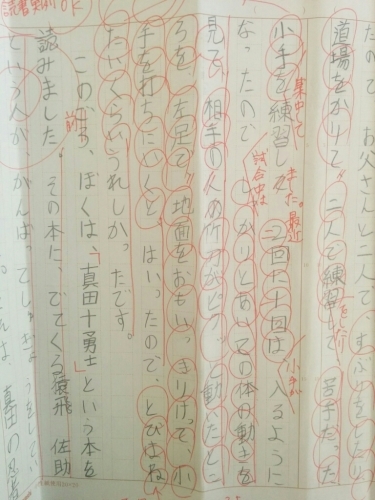 読書感想 OK
たので お父さんと二人で すぶりをしたり
道場をかりて、二人で練習して 苦手だった
を行い
集中して
小手を練習した
きた。最近
二回に一回は 入るように
小手が
なったので
試合中は
しっかりとあいての体の動きを
見て、相手の人の竹刀がピクッと動いたとこ
ろを、左足で地面をおもいっきりけって、小
手を打ちにいくと、はいったので、とびはね
たいくらいうれしかったです。
前
このごろ、ぼくは、「真田十勇士」という本を
読みました。その本に、でてくる猿飛 佐助
という人が がんばって
真田の